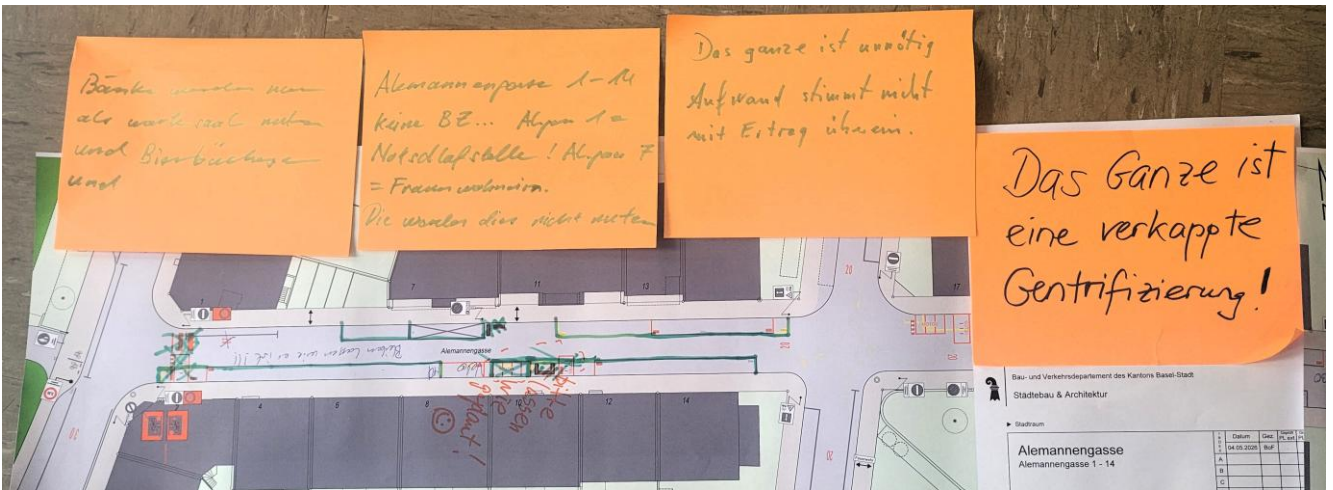 Bänke werden nur
als wartesaal nutzen
und
und
Alemannengasse 1-14
keine BZ... Algasse 1 =
Notschlafstelle! Algasse 7
= Frauenwohnheim.
Die werden dies nicht nutzen
Das ganze ist unnötig
Aufwand stimmt nicht
mit Ertrag überein.
Das Ganze ist
eine verkappte
Gentrifizierung!
1
7
11
13
17
20
Alemannengasse
bitte
lassen
wie
geplant!
4
6
8
10
12
14
30
20
Bau- und Verkehrsdepartement des Kantons Basel-Stadt
Städtebau & Architektur
Stadtraum
Alemannengasse
Alemannengasse 1 - 14
Datum
Gez.
04.05.2026
BoF
A
B
C